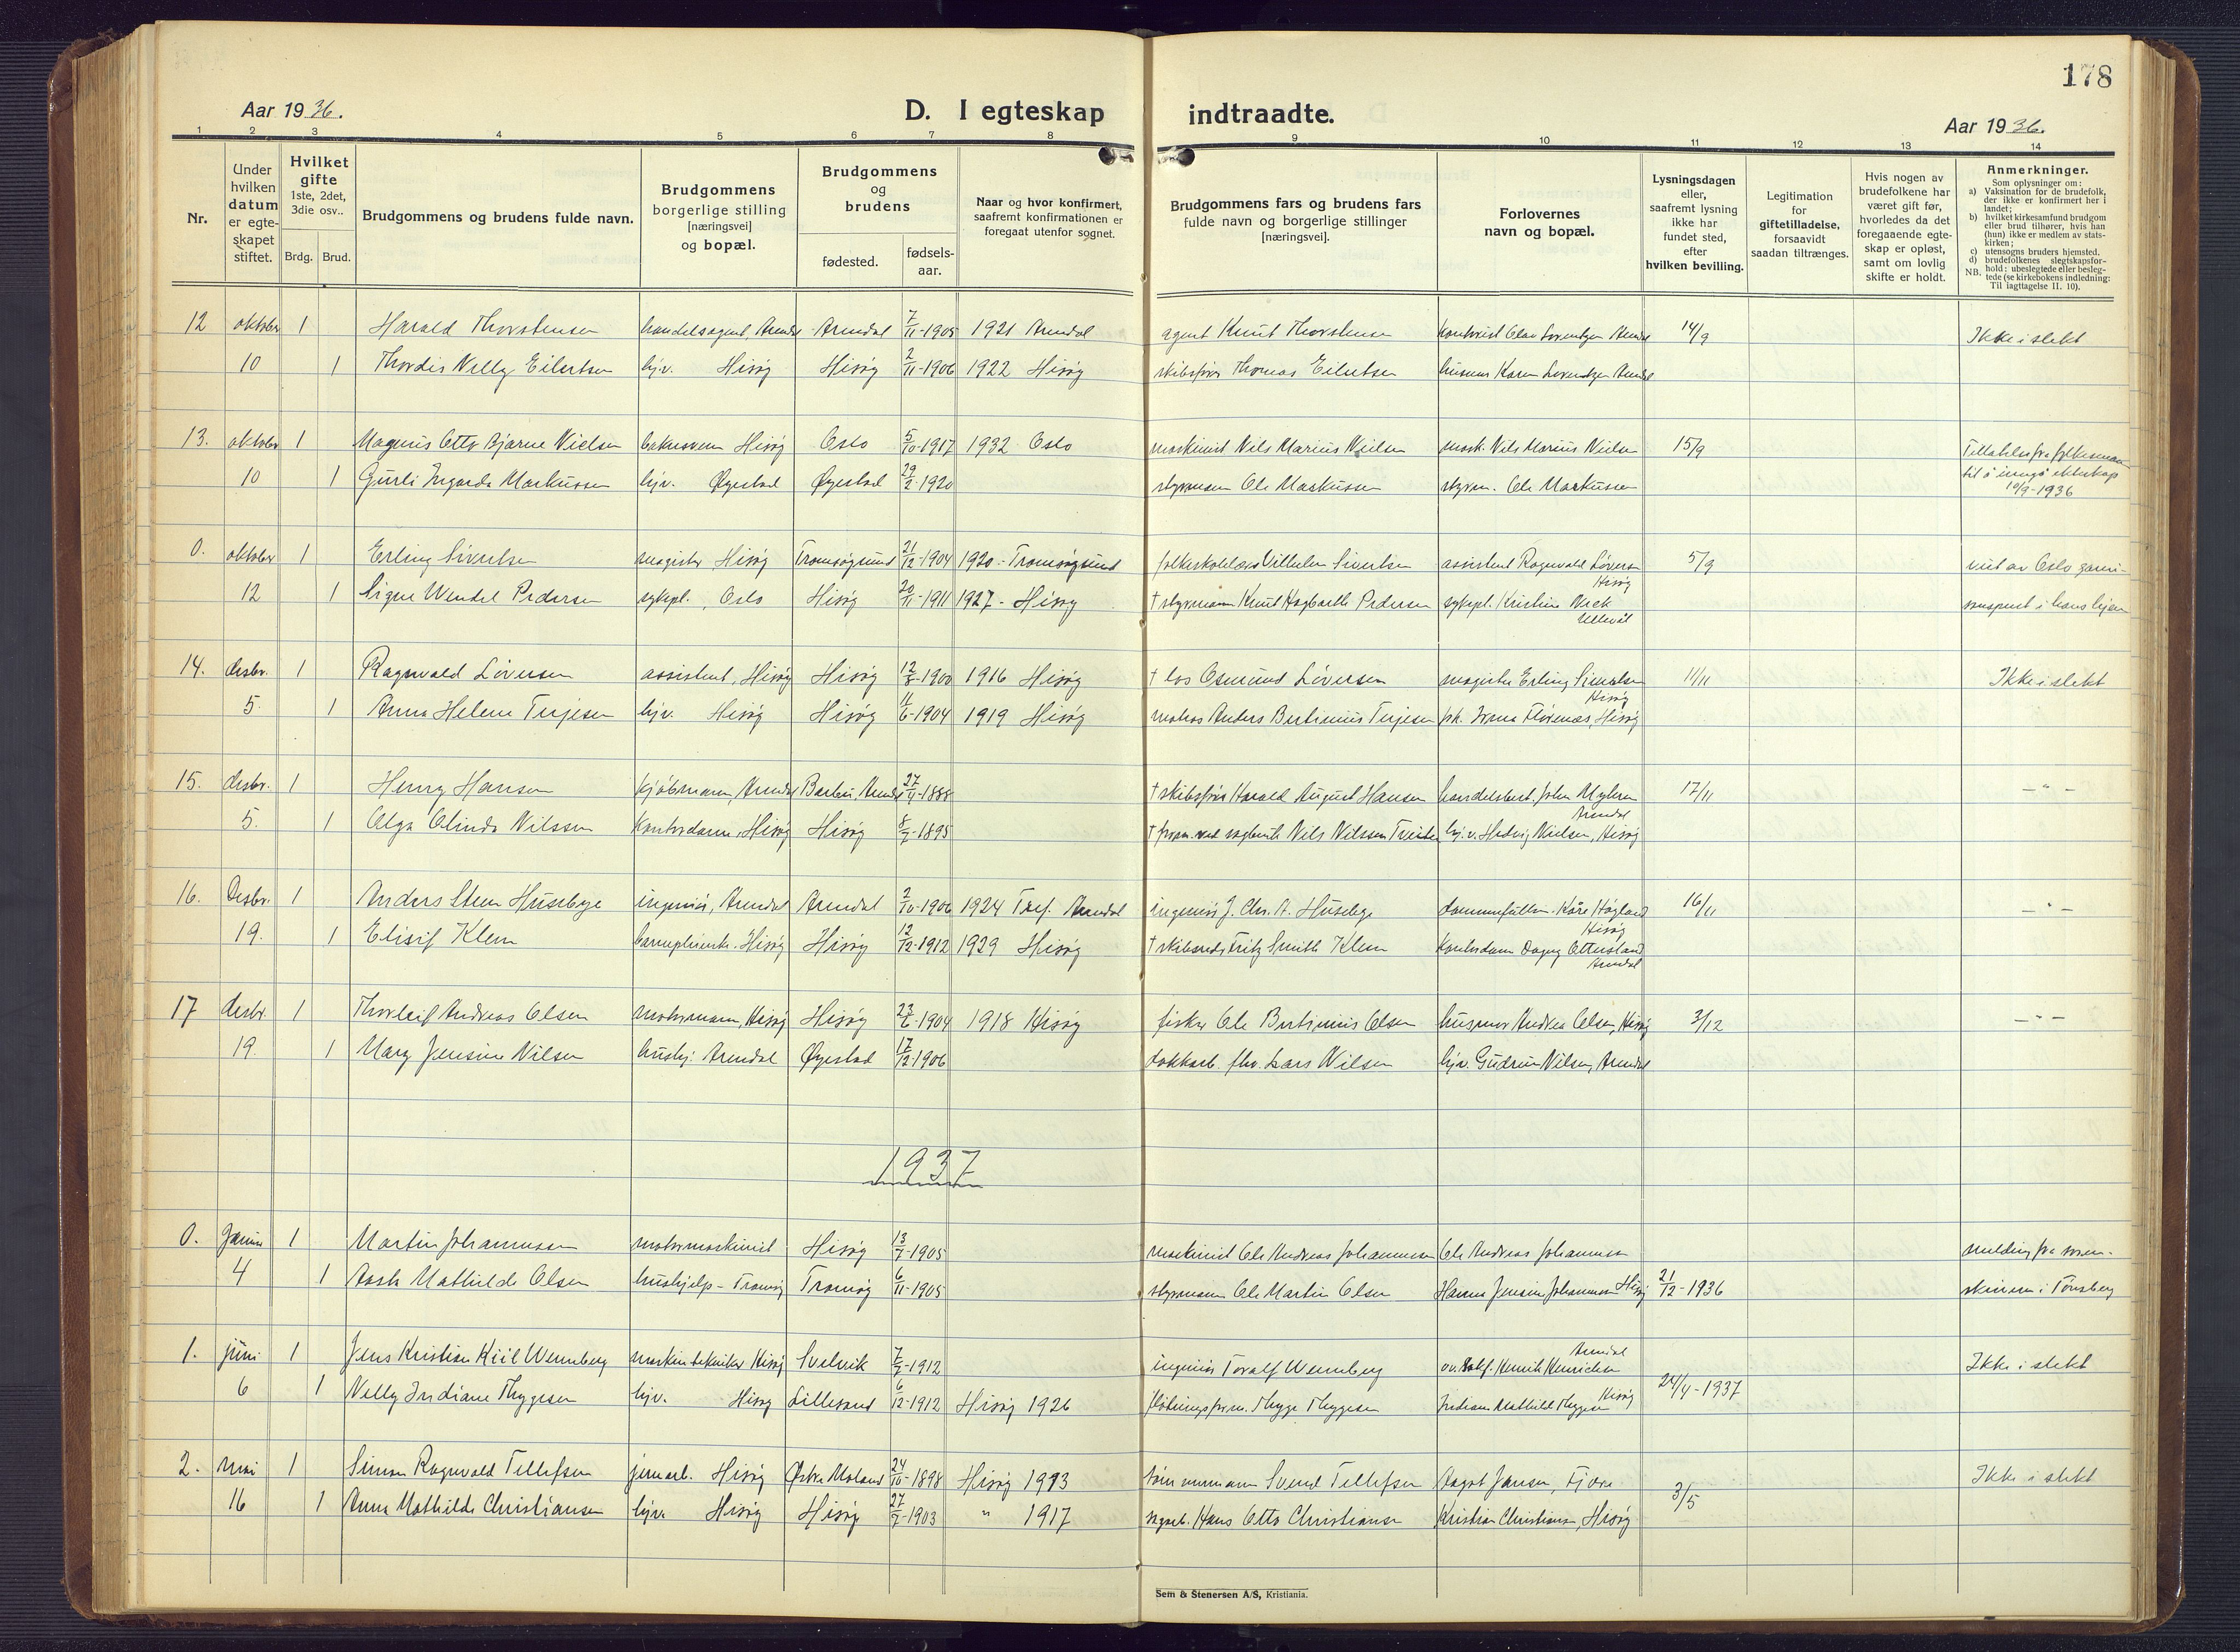 178
Aar 1936.
D. I egteskap indtraadte.
Aar 1936.
1 2 3 4 5 6 7 8 9 10 11 12 13 14
Nr.
Under hvilken datum er egte-skapet stiftet.
Hvilket gifte 1ste, 2det, 3die osv..
Brdg. Brud.
Brudgommens og brudens fulde navn.
Brudgommens borgerlige stilling [næringsvei] og bopæl.
Brudgommens og brudens
fødested. fødsels-aar.
Naar og hvor konfirmert, saafremt konfirmationen er foregaat utenfor sognet.
Brudgommens fars og brudens fars fulde navn og borgerlige stillinger [næringsvei].
Forlovernes navn og bopæl.
Lysningsdagen eller, saafremt lysning ikke har fundet sted, efter hvilken bevilling.
Legitimation for giftetilladelse, forsaavidt saadan tiltrænges.
Hvis nogen av brudefolkene har været gift før, hvorledes da det foregaaende egte-skap er opløst, samt om lovlig skifte er holdt.
Anmerkninger.
Som oplysninger om:
a) Vaksination for de brudefolk, der ikke er konfirmert her i landet;
b) hvilket kirkesamfund brudgom eller brud tilhører, hvis han (hun) ikke er medlem av stats-kirken;
c) utensogns bruders hjemsted.
d) brudefolkenes slegtskapsfor-hold: ubeslegtede eller besleg-tede (se kirkebokens indledning: Til iagttagelse II. 10).
NB.
12 oktober 1 Harald Thorstensen handelsagent, Arendal Arendal 7/11-1905 1921 Arendal agent Knut Thorstensen kontorist Olav Lorentzen Arendal 14/9 Ikke i slekt
10 1 Thordis Nelly Eilertsen hj.v. Hisøy Hisøy 2/11-1906 1922 Hisøy skibsfører Thomas Eilertsen husmor Karen Lorentzen Arendal
13. oktober 1 Magnus Otto Bjarne Nielsen bakersvenn Hisøy Oslo 5/10-1917 1932 Oslo maskinist Nils Marius Nielsen mask. Nils Marius Nielsen 15/9 Tillatelse fra fylkesmann
10 1 Gurli Ingarda Markussen hj.v. Øyestad Øyestad 29/2-1920 styrmann Ole Markussen styrm. Ole Markussen til å inngå ekteskap
10/9-1936
0. oktober 1 Erling Sivertsen magister Hisøy Tromsøysund 21/12-1904 1920 - Tromsøysund folkeskolelærer Vilhelm Sivertsen assistent Ragnvald Løversen 5/9 viet av Oslo garni-
Hisøy
12 1 Signe Wendel Pedersen sykepl., Oslo Hisøy 20/11-1911 1927 - Hisøy † styrmann Knut Hagbarth Pedersen sykepl. Kristine
Ullevål
14. desbr. 1 Ragnvald Løversen assistent, Hisøy Hisøy 12/8-1900 1916 Hisøy † los Osmund Løversen magister Erling Sivertsen 11/11 Ikke i slekt
Hisøy
5. 1 Anna Helene Terjesen hj.v. Hisøy Hisøy 11/6-1904 1919 Hisøy matros Anders Bertinius Terjesen frk. Irma Flørenæs, Hisøy
15. desbr. 1 Henry Hansen kjøbmann, Arendal Barbu, Arendal 27/4-1888 † skibsfører Harald August Hansen handelsbest. John Myhren 17/11 - " -
Arendal
5. 1 Olga Olinda Nilssen kontordame, Hisøy Hisøy 8/7-1895 † form. ved sagbruk Nils Nilssen Tveiten hj.v. Hedvig Nielsen, Hisøy
16. Desbr. 1 Anders Steen Husebye ingeniør, Arendal Arendal 2/10-1906 1924 Tref. Arendal ingeniør J. Chr. A. Husebye dommerfullm. Kåre Høgland 16/11 - " -
Hisøy
19. 1 Elisif Klem Hisøy Hisøy 12/12-1912 1929 Hisøy † skibsreder Fritz Smith Klem kontordame Dagny Ottersland
Arendal
17 desbr. 1 Thorleif Andreas Olsen motormann, Hisøy Hisøy 22/6-1904 1918 Hisøy fisker Ole Bertinius Olsen husmor Andrea Olsen, Hisøy 3/12 - " -
19. 1 Mary Jensine Nilsen hushj. Arendal Øyestad 17/12-1906 dokkarb. fhv. Lars Nilsen hj.v. Gudrun Nilsen, Arendal
1937
0. Januar 1 Martin Johannessen motormaskinist Hisøy 13/7-1905 maskinist Ole Andreas Johannessen Ole Andreas Johannessen melding fra soren-
4 1 Aasta Mathilde Olsen hushjelp - Tromøy Tromøy 6/11-1905 styrmann Ole Martin Olsen Hanna Jensine Johannessen Hisøy 21/12-1936 skriveren i Tønsberg
1. juni 1 Jens Kristian Kiil Wennberg maskintekniker Hisøy Svelvik 7/7-1912 ingeniør Toralf Wennberg Henrik Henrichsen Ikke i slekt
Arendal
6 1 Nelly Indiane Thygesen hj.v. Hisøy Lillesand 6/12-1912 Hisøy 1926 fløtningsform. Thyge Thygesen Indiane Mathilde Thygesen Hisøy 24/4-1937
2. mai 1 Simon Ragnvald Tellefsen jernarb. Hisøy Østre Moland 24/10-1898 Hisøy 1913 tømmermann Svend Tellefsen Aagot Jansen, Fjære Ikke i slekt
16 1 Anna Mathilde Christiansen hj.v. Hisøy Hisøy 27/7-1903 " 1917 Hans Otto Christiansen Kristian Christiansen, Hisøy 3/5
Sem & Stenersen A/S, Kristiania.